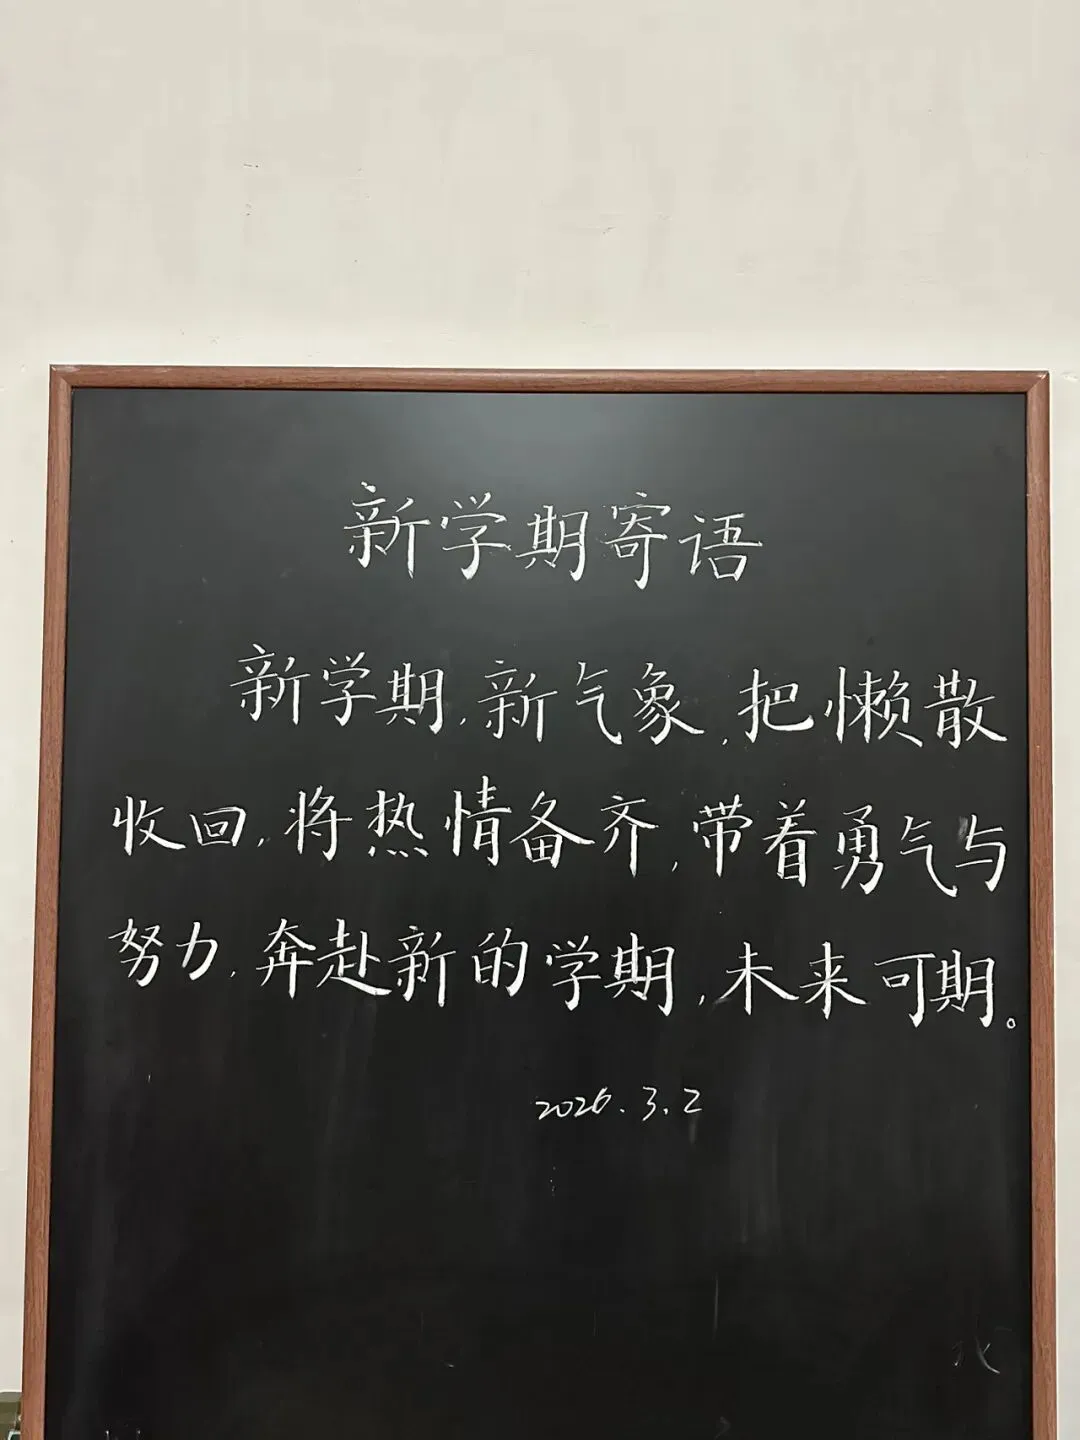 新学期寄语
新学期,新气象,把懒散
收回,将热情备齐,带着勇气与
努力,奔赴新的学期,未来可期。
2026.3.2